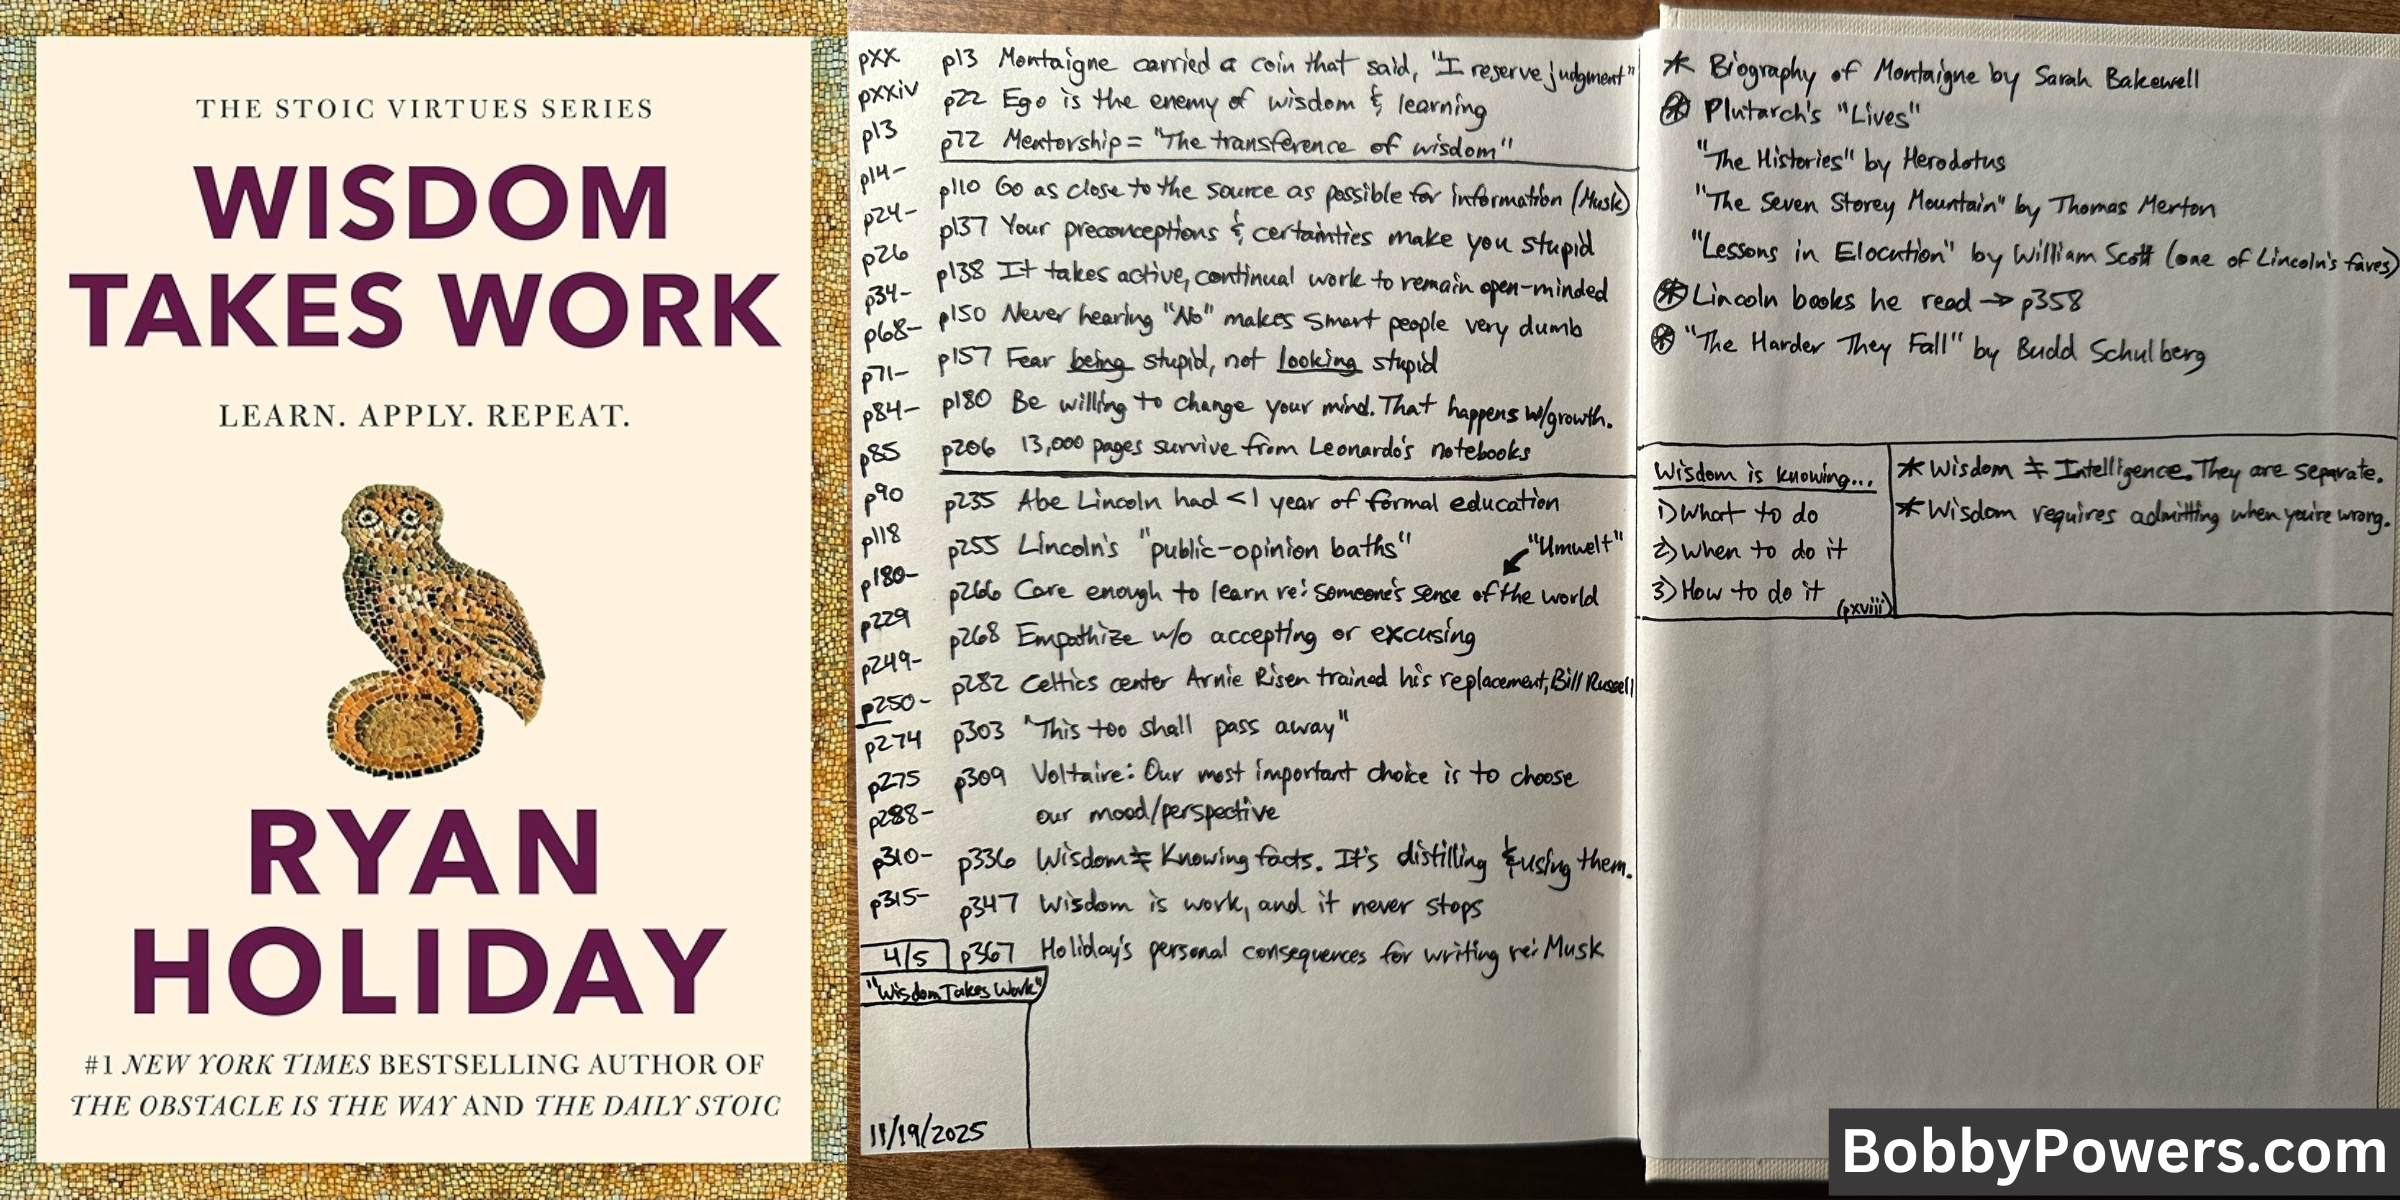 THE STOIC VIRTUES SERIES
WISDOM
TAKES WORK
LEARN. APPLY. REPEAT.
RYAN
HOLIDAY
#1 NEW YORK TIMES BESTSELLING AUTHOR OF
THE OBSTACLE IS THE WAY AND THE DAILY STOIC
pxx
pxxiv
p13
p14-
p24-
p26
p34-
p68-
p71-
p84-
p85
p90
p118
p180-
p229
p249-
p250-
p274
p275
p288-
p310-
p315-
4/5
"Wisdom Takes Work"
11/19/2025
p13 Montaigne carried a coin that said, "I reserve judgment"
p22 Ego is the enemy of wisdom & learning
p72 Mentorship = "The transference of wisdom"
p110 Go as close to the source as possible for information (Musk)
p137 Your preconceptions & certainties make you stupid
p138 It takes active, continual work to remain open-minded
p150 Never hearing "No" makes smart people very dumb
p157 Fear being stupid, not looking stupid
p180 Be willing to change your mind. That happens w/growth.
p206 13,000 pages survive from Leonardo's notebooks
p235 Abe Lincoln had <1 year of formal education
p255 Lincoln's "public-opinion baths"
"Umwelt"
p266 Care enough to learn re: someone's sense of the world
p268 Empathize w/o accepting or excusing
p282 Celtics center Arnie Risen trained his replacement, Bill Russell
p303 "This too shall pass away"
p309 Voltaire: Our most important choice is to choose
our mood/perspective
p336 Wisdom ≠ Knowing facts. It's distilling & using them.
p347 Wisdom is work, and it never stops
p367 Holiday's personal consequences for writing re: Musk
* Biography of Montaigne by Sarah Bakewell
* Plutarch's "Lives"
"The Histories" by Herodotus
"The Seven Storey Mountain" by Thomas Merton
"Lessons in Elocution" by William Scott (one of Lincoln's faves)
* Lincoln books he read → p358
* "The Harder They Fall" by Budd Schulberg
Wisdom is knowing...
1) What to do
2) When to do it
3) How to do it
(pxviii)
* Wisdom ≠ Intelligence. They are separate.
* Wisdom requires admitting when you're wrong.
BobbyPowers.com